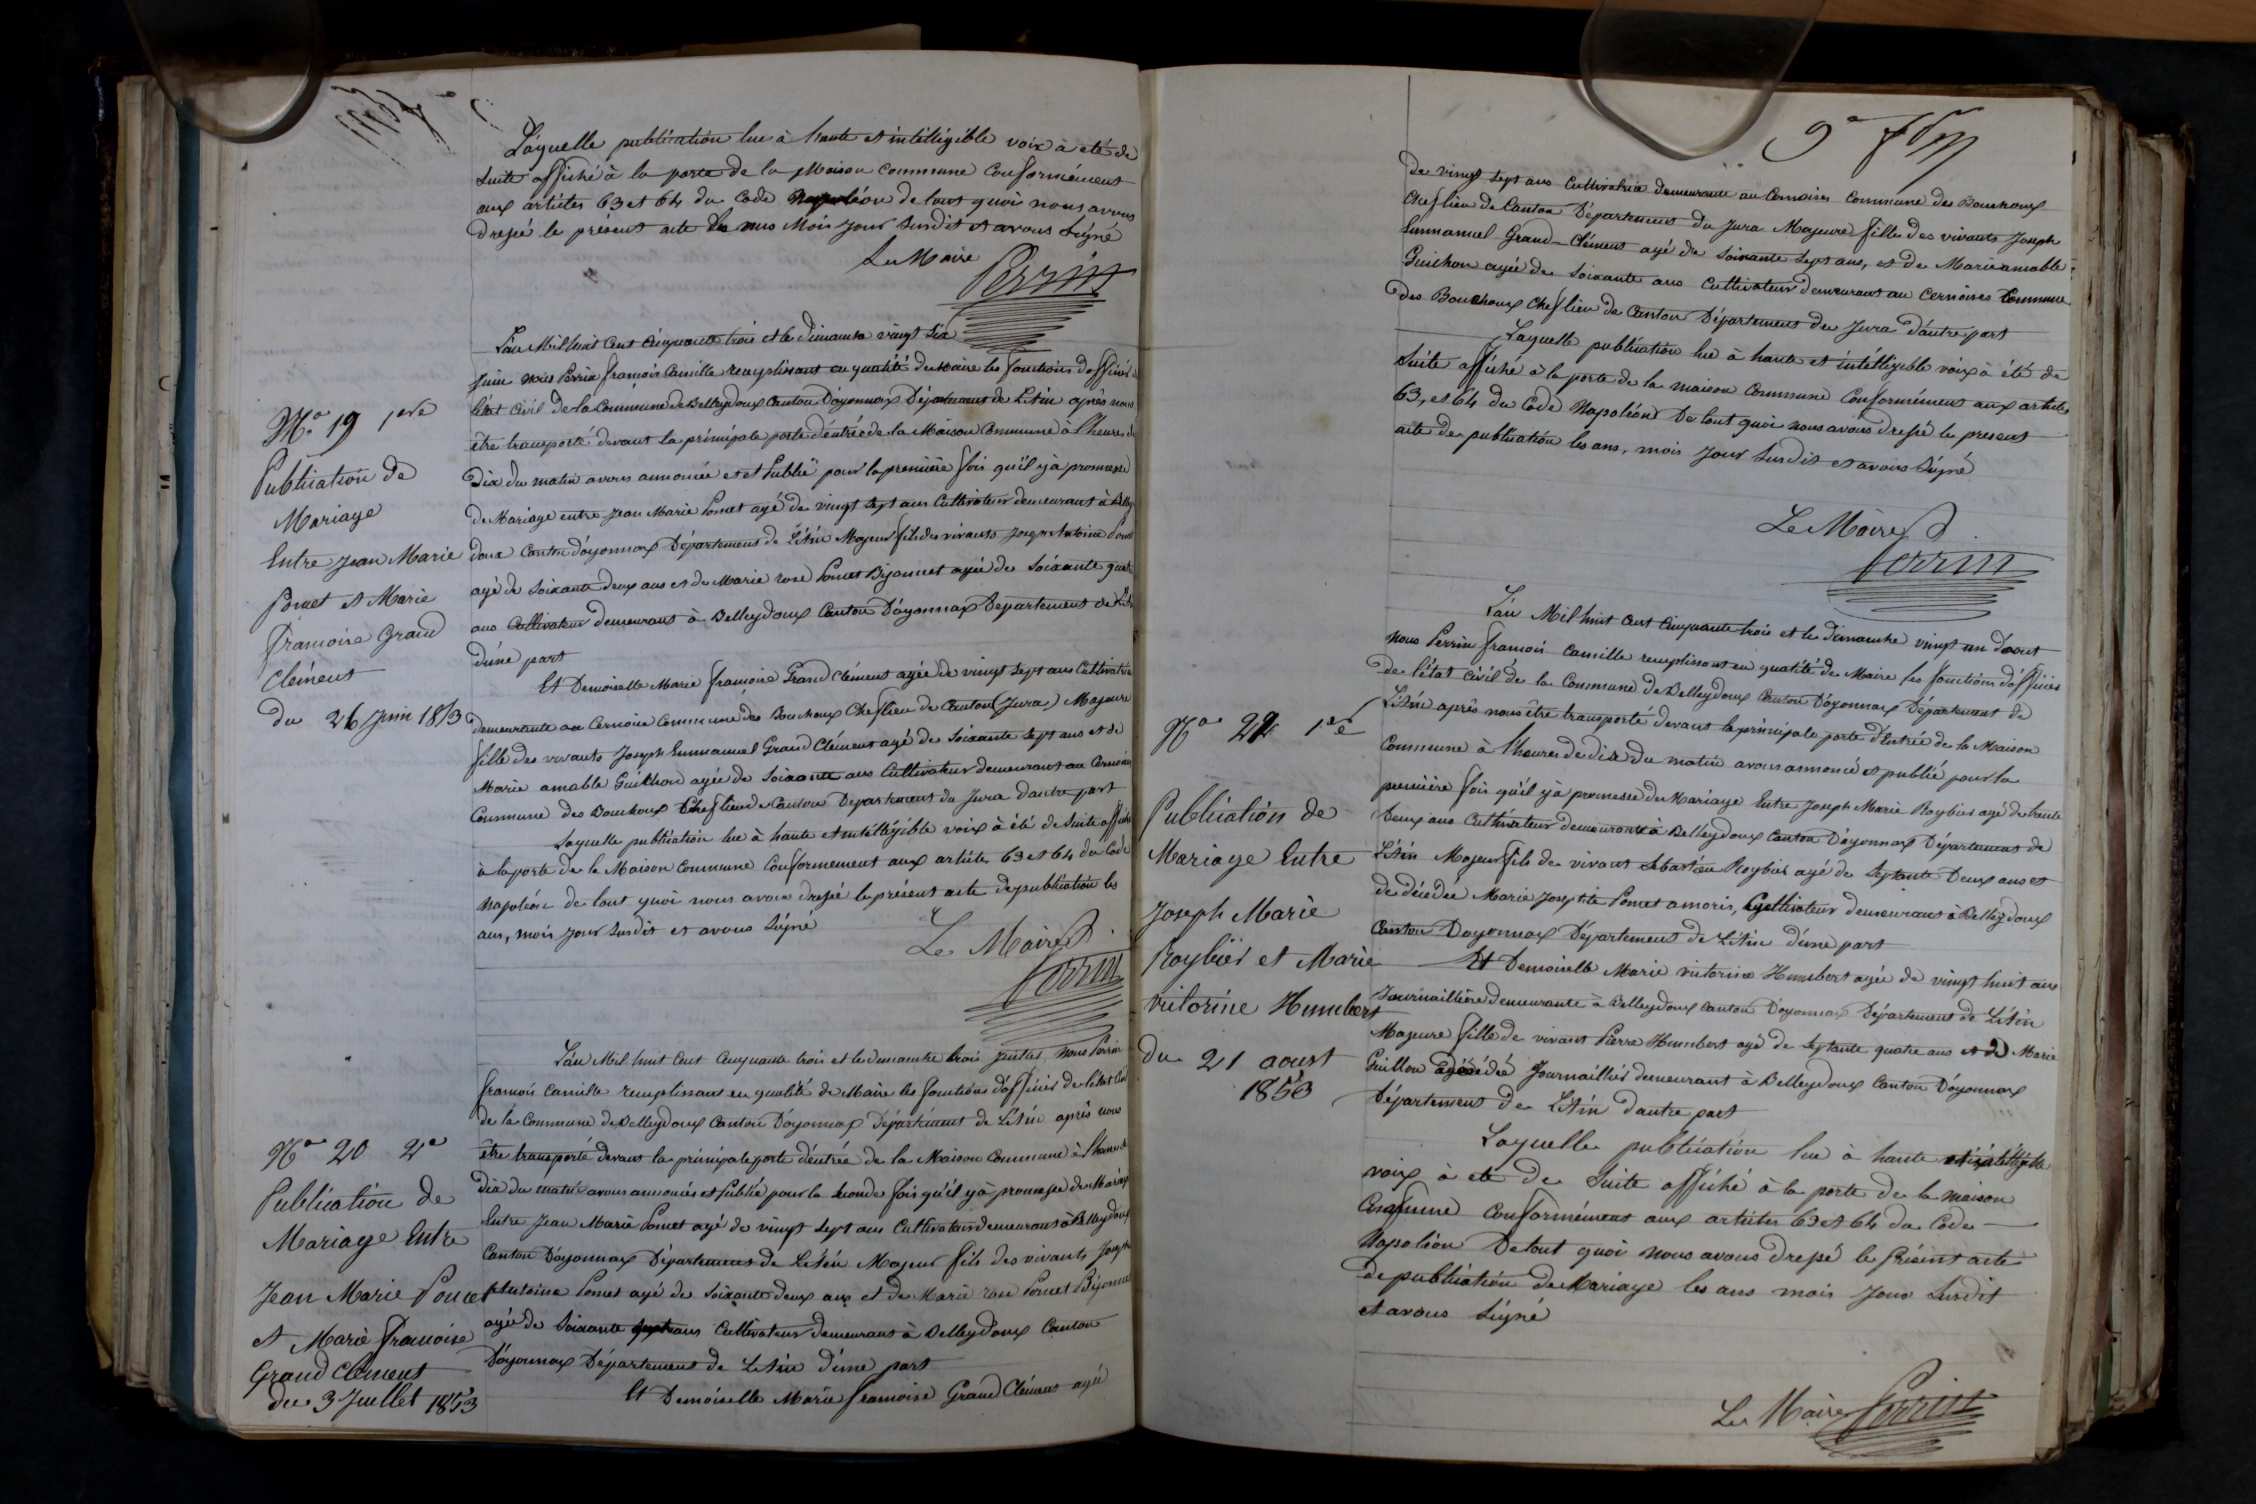 Laquelle publication lue à haute et intelligible voix à été de
suite affiché à la porte de la Maison commune Conformément
aux articles 63 et 64 du Code Napoléon de tout quoi nous avons
dressé le présent acte les ans Mois jour susdit et avons signé
Le Maire
Perrin
L'an Mil huit Cent Cinquante trois et le dimanche vingt six
juin nous Perrin françois Camille remplissant en qualité de Maire les fonctions d'officier
l'état Civil de la Commune de Belleydoux Canton D'oyonnax Département de L'Ain après nous
être transporté devant la principale porte d'entrée de la Maison Commune à l'heure de
Dix du matin avons annoncée et et Publié pour la première fois qu'il y à promesse
de Mariage entre Jean Marie Poncet agé de vingt sept ans Cultivateur demeurant à Belley
doux Canton d'oyonnax Département de L'Ain Majeur fils des vivants Joseph Antoine Poncet
agé de Soixante deux ans et de Marie rose Poncet Bijonnet agée de Soixante quatre
ans Cultivateur demeurant à Belleydoux Canton D'oyonnax Département de L'Ain
d'une part
Et Demoiselle Marie françoise Grand Clément agée de vingt sept ans Cultivatrice
demeurante au Cernoise Commune des Bouchoux Chef lieu de Canton (Jura) Majeure
fille des vivants Joseph Emmanuel Grand Clément agé de Soixante sept ans et de
Marie amable Guichon agée de Soixante ans Cultivateur demeurant au Cernoises
Commune des Bouchoux Chef lieu de Canton Département du Jura d'autre part
Laquelle publication lue à haute et intelligible voix à été de Suite affiché
à la porte de la Maison Commune Conformement aux articles 63 et 64 du Code
Napoléon de tout quoi nous avons dressé le présent acte de publication les
ans, mois jour Susdit et avons Signé
Le Maire
Perrin
L'an Mil huit Cent Cinquante trois et le dimanche trois juillet, Nous Perrin
françois Camille remplissant en qualité de Maire les fonctions d'officier de l'état Civil
de la Commune de Belleydoux Canton D'oyonnax Département de L'Ain après nous
être transporté devant la principale porte d'entrée de la Maison Commune à l'heure de
dix du matin avons annoncés et Publié pour la seconde fois qu'il y à promesse de Mariage
Entre Jean Marie Poncet agé de vingt sept ans Cultivateur demeurant à Belleydoux
Canton D'oyonnax Département de L'Ain Majeur fils des vivants Joseph
Antoine Poncet agé de Soixante deux ans et de Marie rose Poncet Bijonnet
agée de Soixante ans Cultivateur demeurant à Belleydoux Canton
D'oyonnax Département de L'Ain d'une part
Et Demoiselle Marie françoise Grand Clément agée
No 19 1ere
Publication de
Mariage
Entre Jean Marie
Poncet et Marie
françoise Grand
Clément
du 26 Juin 1853
No 20 2e
Publication de
Mariage Entre
Jean Marie Poncet
et Marie françoise
Grand Clément
du 3 Juillet 1853
9e
de vingt sept ans Cultivatrice demeurante au Cernoises Commune des Bouchoux
Chef lieu de Canton Département du Jura Majeure fille des vivants Joseph
Emmanuel Grand-Clément agé de Soixante sept ans, et de Marie amable
Guichon agée de Soixante ans Cultivateur demeurant au Cernoises Commune
des Bouchoux Chef lieu de Canton Département du Jura d'autre part
Laquelle publication lue à haute et intelligible voix à été de
Suite affiché à la porte de la maison Commune Conformément aux articles
63, et 64 du Code Napoléon De tout quoi nous avons dressé le present
acte de publication les ans, mois jour Susdit et avons Signé
Le Maire
Perrin
L'an Mil huit Cent Cinquante trois et le dimanche vingt un d'aout
nous Perrin françois Camille remplissant en qualité de Maire les fonctions d'officier
de l'état Civil de la Commune de Belleydoux Canton D'oyonnax Département de
L'Ain après nous être transporté devant la principale porte d'Entrée de la Maison
Commune à l'heure de dix du matin avons annoncé et publié pour la
première fois qu'il y à promesse de Mariage Entre Joseph Marie Roybier agé de trente
Deux ans Cultivateur demeurant à Belleydoux Canton D'oyonnax Département de
L'Ain Majeur fils de vivant Sebastien Roybier agé de Septante Deux ans et
de décédée Marie Josephte Poncet amoris, Cultivateur demeurant à Belleydoux
Canton Doyonnax Département de L'Ain d'une part
Et Demoiselle Marie victorine Humbert agée de vingt huit ans
Journaillière demeurante à Belleydoux Canton D'oyonnax Département de L'Ain
Majeure fille de vivant Pierre Humbert agé de Septante quatre ans et de Marie
Guillon décédée Journaillier demeurant à Belleydoux Canton D'oyonnax
Département de L'Ain d'autre part
Laquelle publication lue à haute et intelligible
voix à eté de Suite affiché à la porte de la maison
Commune Conformément aux articles 63 et 64 du Code
Napoléon De tout quoi nous avons dressé le Présent acte
de publication de Mariage les ans mois Jour Susdit
et avons Signé
Le Maire Perrin
No 22 1ere
Publication de
Mariage Entre
Joseph Marie
Roybier et Marie
victorine Humbert
du 21 aoust
1853